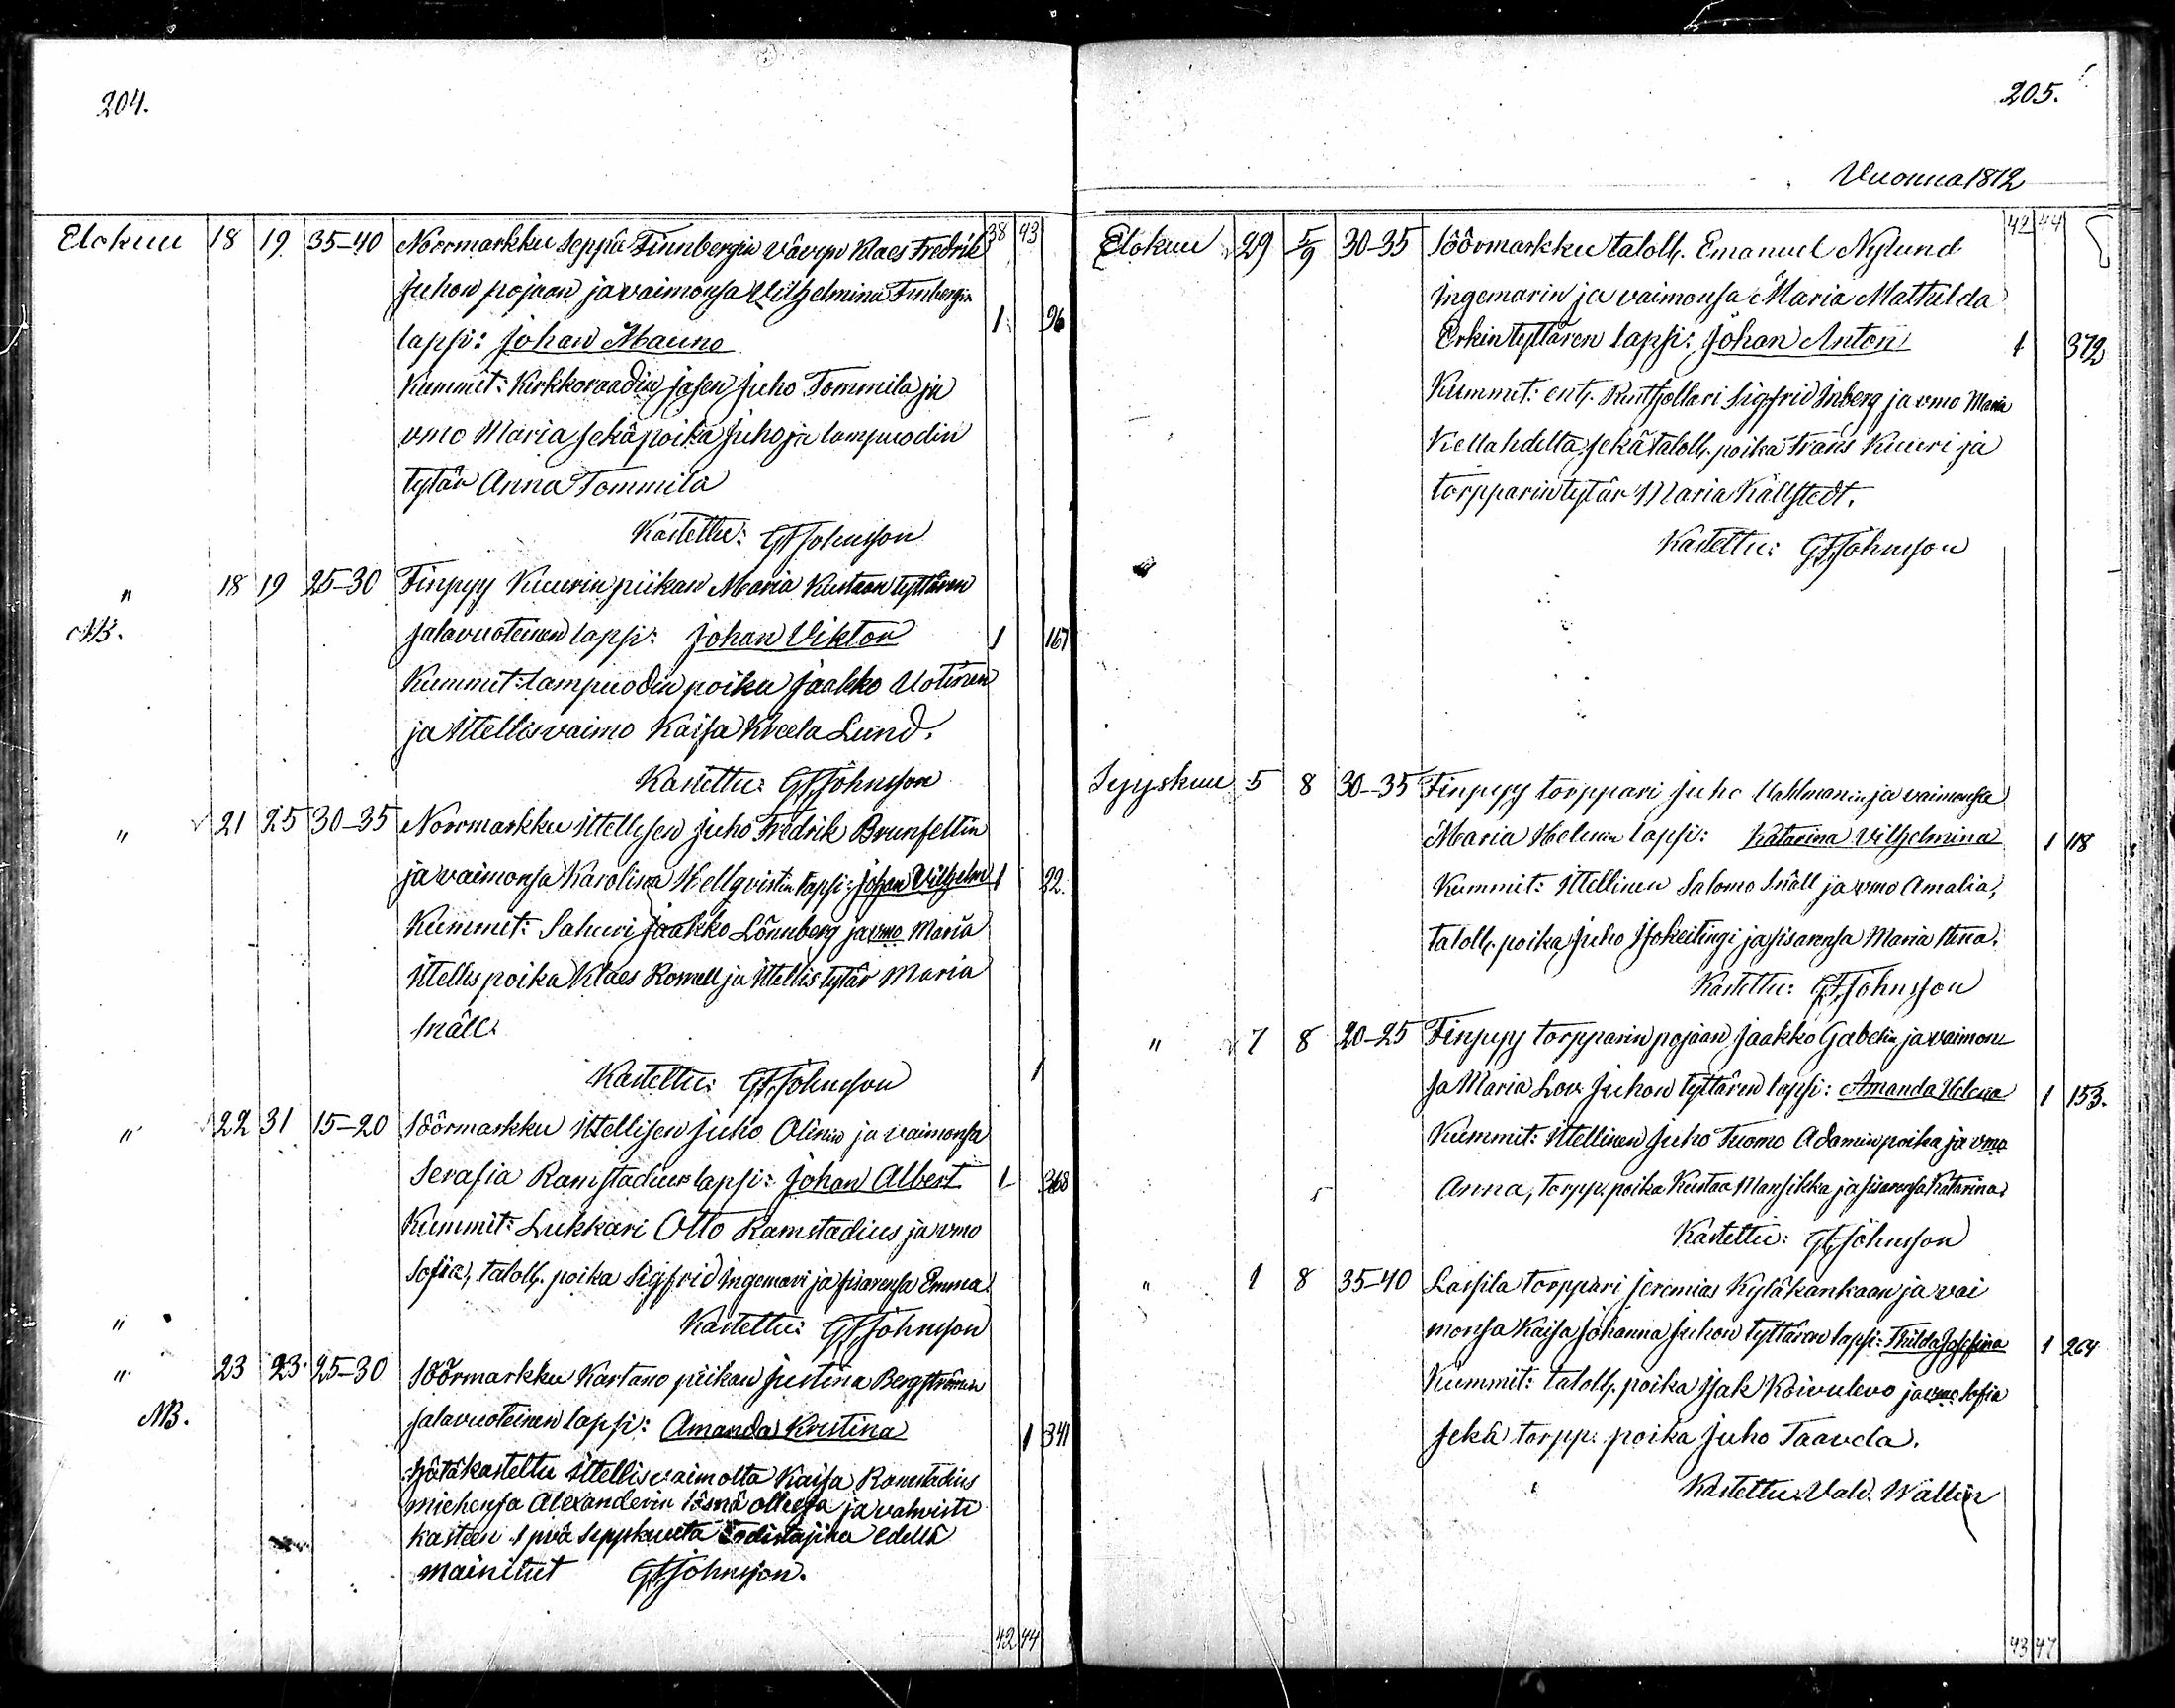 204.
Elokuu 18 19 35-40 Norrmarkku Seppä Finnbergin vävyn Klaes Fredrik 38 43
Juhon pojan ja vaimonsa Vilhelmina Finbergin
lapsi: Johan Mauno 1 96
Kummit: Kirkkoraadin jäsen Juho Tommila ja
vmo Maria sekä poika Juho ja lampuodin
tytär Anna Tommila
Kastettu: GFJohnsson
" 18 19 25-30 Finpyy Kuurin piikan Maria Kustaan tyttären
NB. salavuoteinen lapsi: Johan Viktor 1 167
Kummit: lampuodin poika Jaakko Uotinen
ja ittellis vaimo Kaisa Lund.
Kastettu: GFJohnsson
" 21 25 30-35 Norrmarkku ittellisen Juho Fredrik Brunfeltin
ja vaimonsa Karolina Hellqvistin lapsi: Johan Vilhelm 1 22.
Kummit: Sahuri Jaakko Lönnberg ja vmo Maria
ittellis poika Klaes Romell ja ittellis tytär Maria
Snäll.
Kastettu: GFJohnsson 1
" 22 31 15-20 Söörmarkku ittellisen Juho Olinin ja vaimonsa
Serafia Ramstadius lapsi: Johan Albert 1 368
Kummit: Lukkari Otto Ramstadius ja vmo
Sofia, taloll. poika Sigfrid Ingemari ja sisarensa Emma.
" Kastettu: GFJohnsson
" 23 23 25-30 Söörmarkku Kartano piikan Justina Bergströmin
NB. salavuoteinen lapsi: Amanda Kristina 1 341
Hätäkastettu ittellis vaimolta Kaisa Ramstadius
miehensä Alexanderin läsnä ollessa ja vahvisti
kasteen 1 pvä Syyskuuta Todistajina edellä
mainitut GFJohnsson.
42 44
205.
Vuonna 1872
Elokuu 29 5/9 30-35 Söörmarkku taloll. Emanuel Nylund 42 44
Ingemarin ja vaimonsa Maria Mathilda
Erkin tyttären lapsi: Johan Anton 1 372
Kummit: ent. Rusthollari Sigfrid Inberg ja vmo Maria
Kellahdelta, sekä taloll. poika Frans Kuuri ja
torpparin tytär Maria Källstedt.
Kastettu: GFJohnsson
Syyskuu 5 8 30-35 Finpyy torppari Juho Vahlmanin ja vaimonsa
Maria Helenan lapsi: Katarina Vilhelmina 1 118
Kummit: ittellinen Salomo Snäll ja vmo Amalia,
taloll. poika Juho Isokeitingi ja sisarensa Maria Stina.
Kastettu: GFJohnsson
" 7 8 20-25 Finpyy torpparin pojan Jaakko Gabelin ja vaimon
sa Maria Lov. Juhon tyttären lapsi: Amanda Helena 1 153.
Kummit: ittellinen Juho Tuomo Adamin poika ja vmo
Anna, torpp. poika Kustaa Mansikka ja sisarensa Katarina.
Kastettu: GFJohnsson
" 1 8 35-40 Lassila torppari Jeremias Kyläkankaan ja vai
monsa Kaisa Johanna Juhon tyttären lapsi: Thilda Josefina 1 264
Kummit: taloll. poika Isak Koivulevo ja vmo Sofia
sekä torpp. poika Juho Taavela.
Kastettu. Vald. Wallin
43 47